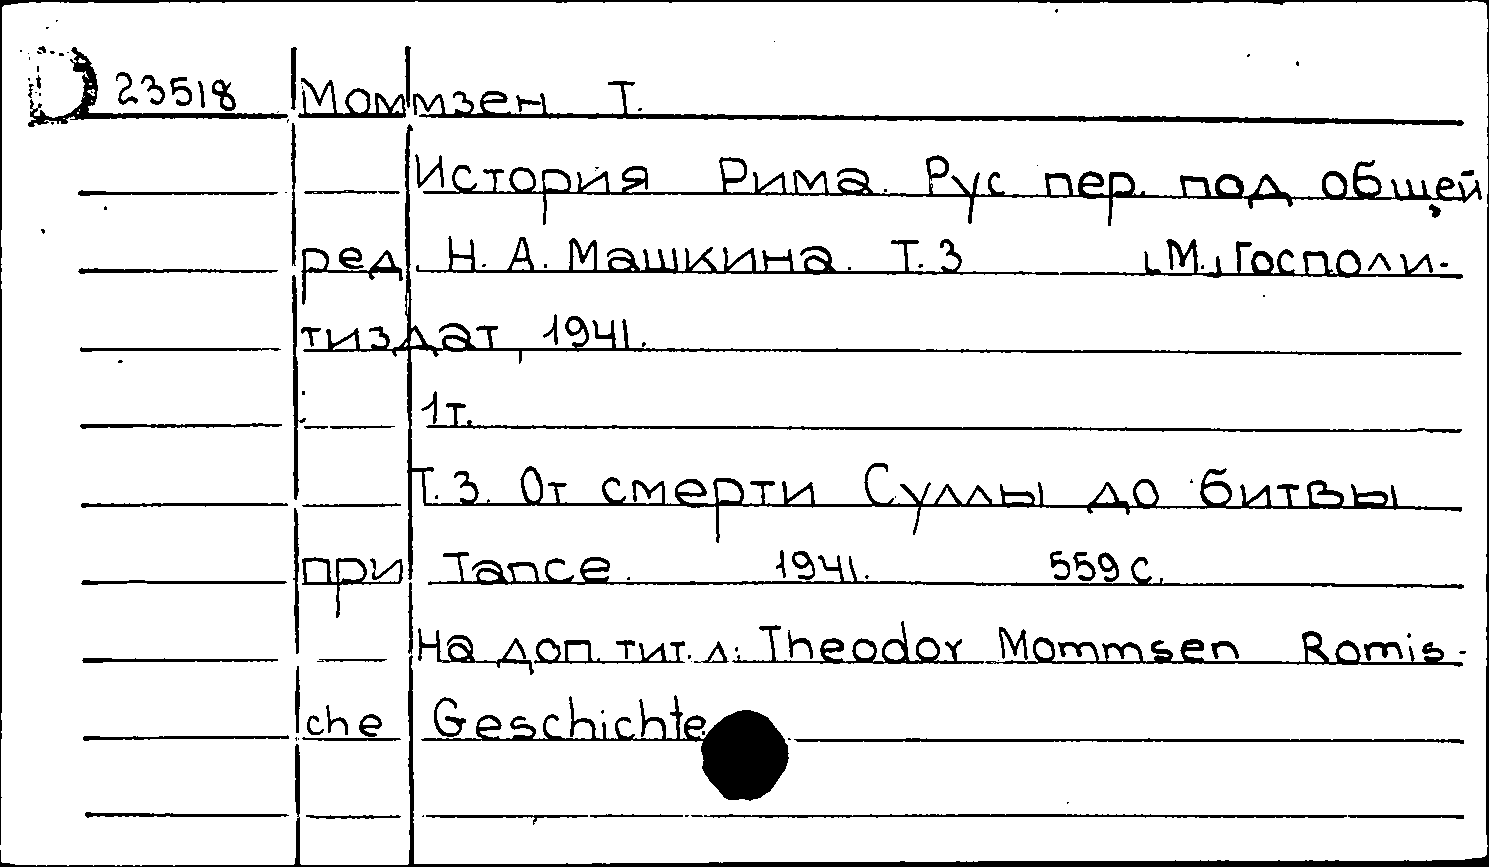 D 23518 Моммзен Т.
История Рима. Рус пер. под общей
ред. Н. А. Машкина. Т.3 [М.] Госполи-
тиздат, 1941.
1т.
Т.3. От смерти Суллы до битвы
при Тапсе. 1941. 559 с.
На доп. тит. л: Theodor Mommsen Romis-
che Geschichte